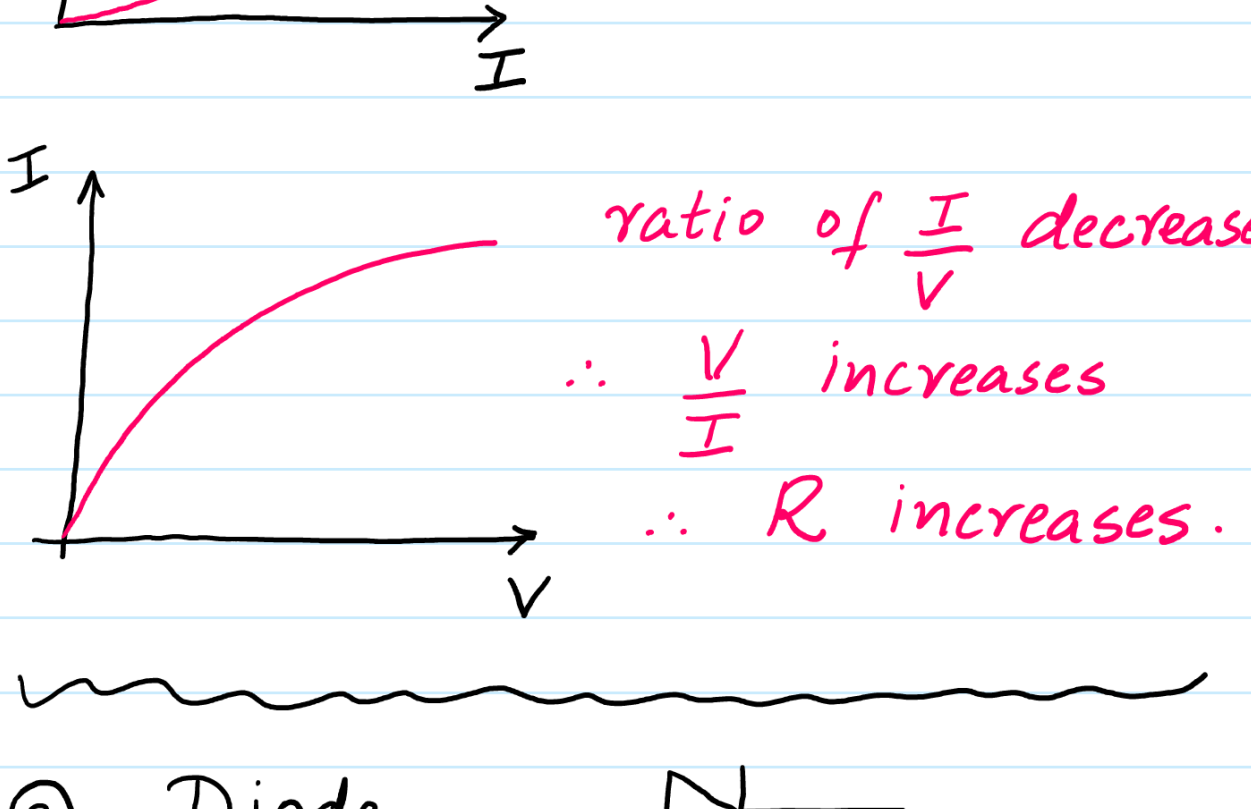 I
I
ratio of I/V decrease
∴ V/I increases
∴ R increases.
V
Diode